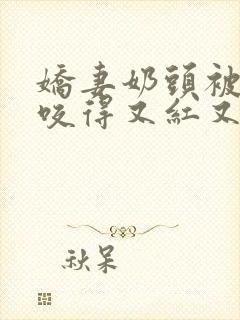 嬌妻奶頭被
咬得又紅又
秋呆